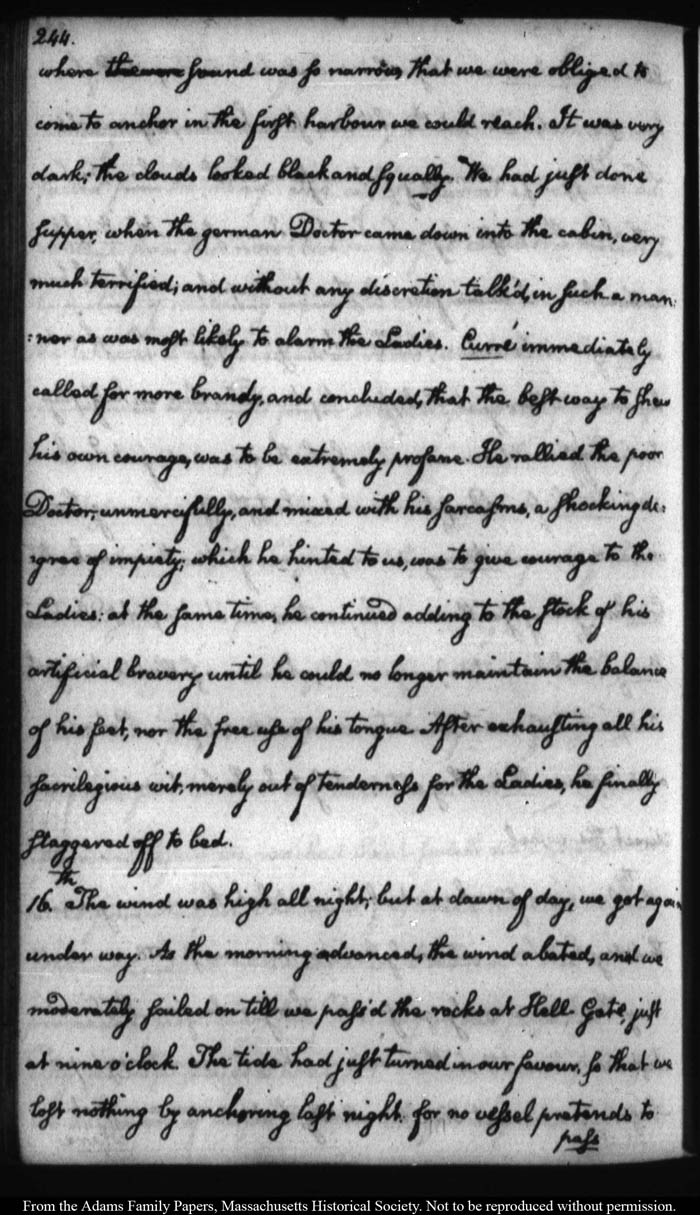 244.
where the were sound was so narrow, that we were obliged to
come to anchor in the first harbour we could reach. It was very
dark; the clouds looked black and squally. We had just done
supper, when the german Doctor came down into the cabin, very
much terrified; and without any discretion talk'd, in such a man:
:ner as was most likely to alarm the Ladies. Curré immediately
called for more brandy, and concluded, that the best way to shew
his own courage, was to be extremely profane. He rallied the poor
Doctor, unmercifully, and mixed with his sarcasms, a shocking de:
:gree of impiety; which he hinted to us, was to give courage to the
Ladies: at the same time, he continued adding to the stock of his
artificial bravery until he could no longer maintain the balance
of his feet, nor the free use of his tongue. After exhausting all his
sacrilegious wit, merely out of tenderness for the Ladies, he finally
staggered off to bed.
16.th The wind was high all night; but at dawn of day, we got again
under way. As the morning advanced, the wind abated, and we
moderately sailed on till we pass'd the rocks at Hell-Gate, just
at nine o'clock. The tide had just turned in our favour, so that we
lost nothing by anchoring last night. for no vessel pretends to
pass
From the Adams Family Papers, Massachusetts Historical Society. Not to be reproduced without permission.